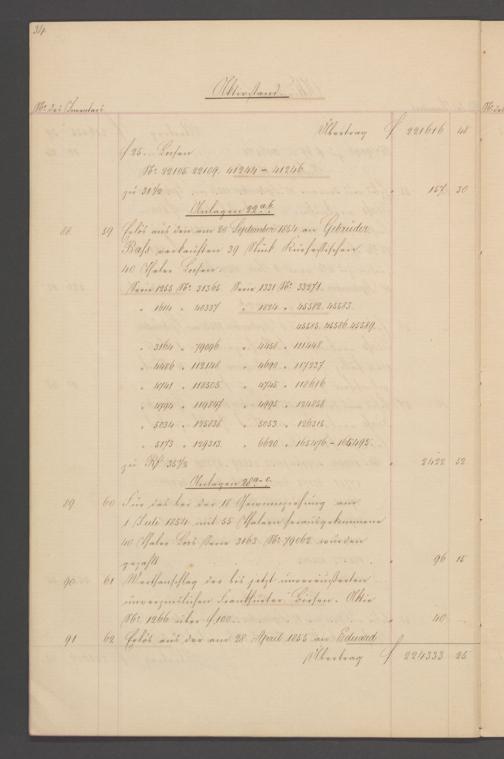 34
Aktivstand
Nº des Inventars
Übertrag f 221616 48
f 25. Loosen
Nº 22105. 22109. 41244 – 41246.
zu 31½ " 157 30
Anlagen 22 a.b.
88 59 Erlös aus den am 20 September 1854 an Gebrüder
Bass verkauften 39 Stück Kurhessischen
40 Thaler Loosen.
Serie 1255 Nº 31365 Serie 1331 Nº 33271.
" 1614 " 40337 " 1824 " 45582. 45583.
45585. 45586. 45589.
" 3164 " 79096 " 4458 " 111448
" 4486 " 112148 " 4690 " 117237
" 4741 " 118505 " 4745 " 118616
" 4794 " 119847 " 4995 " 124858
" 5034 " 125838 " 5053 " 126315
" 5173 " 129313 " 6620 " 165476 – 165495.
zu Rf 35½ " 2422 52
Anlagen 26 a-c.
89 60 Für das bei der 18 Gewinnziehung am
1 Juli 1854 mit 55 Thalern herausgekommene
40 Thaler Loos Serie 3163 Nº 79062 wurden
gezahlt " 96 15
90 61 Werthanschlag der bis jetzt unveräusserten
unverzinslichen Frankfurter Börsen-Aktie
Nº 1266 über f 100 " 40 –
91 62 Erlös aus der am 28 April 1855 an Eduard
Übertrag f 224333 25